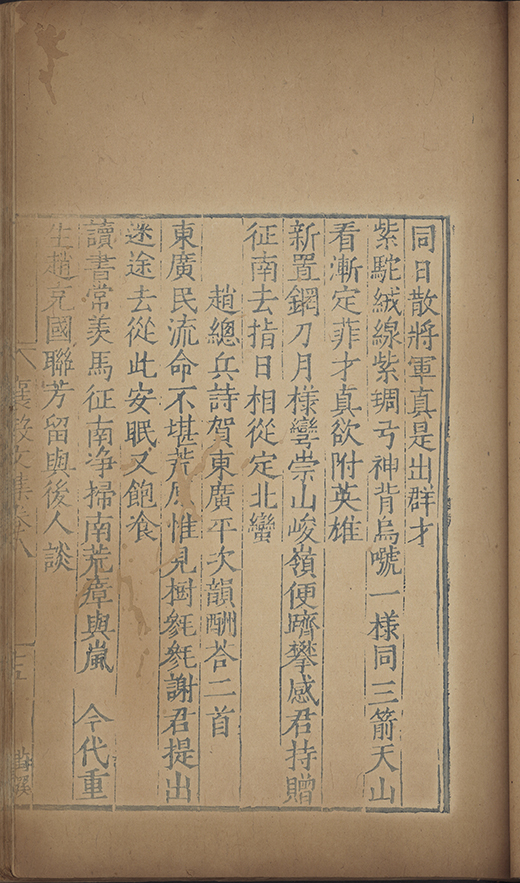 同日散將軍真是出群才
紫駝絨線紫裯弓神背烏號一樣同三箭天山
看漸定菲才真欲附英雄
新置鋼刀月樣彎崇山峻嶺便躋攀感君持贈
征南去指日相從定北蠻
趙總兵詩賀東廣平次韻酬荅二首
東廣民流命不堪荒原惟見樹毿毿謝君提出
迷途去從此安眠又飽飡
讀書常羨馬征南净掃南荒瘴與嵐 今代重
生趙克國聯芳留與後人談
襄毅文集卷八